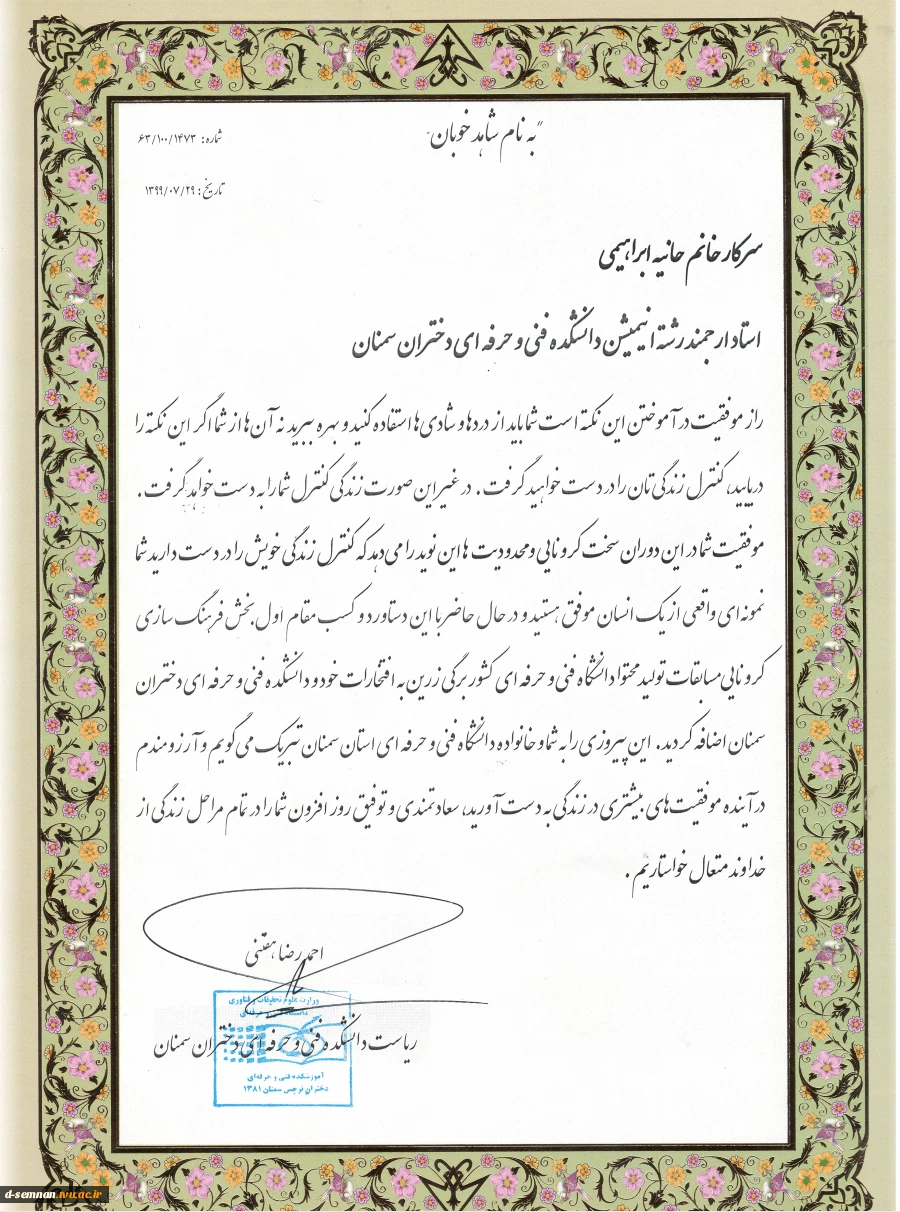 "به نام شاهد خوبان"
شماره: ۶۳/۱۰۰/۱۴۷۳
تاریخ: ۱۳۹۹/۰۷/۲۹
سرکار خانم حانیه ابراهیمی
استاد ارجمند رشته انیمیشن دانشکده فنی و حرفه ای دختران سمنان
راز موفقیت در آموختن این نکته است شما باید از دردها و شادی ها استفاده کنید و بهره ببرید نه آن ها از شما اگر این نکته را
دریابید، کنترل زندگی تان را در دست خواهید گرفت. در غیر این صورت زندگی کنترل شما را به دست خواهد گرفت.
موفقیت شما در این دوران سخت کرونایی و محدودیت ها این نوید را می دهد که کنترل زندگی خویش را در دست دارید شما
نمونه ای واقعی از یک انسان موفق هستید و در حال حاضر با این دستاورد و کسب مقام اول بخش فرهنگ سازی
کرونایی مسابقات تولید محتوا دانشگاه فنی و حرفه ای کشور برگی زرین به افتخارات خود و دانشکده فنی و حرفه ای دختران
سمنان اضافه کردید. این پیروزی را به شما و خانواده دانشگاه فنی و حرفه ای استان سمنان تبریک می گویم و آرزومندم
در آینده موفقیت های بیشتری در زندگی به دست آورید، سعادتمندی و توفیق روز افزون شما را در تمام مراحل زندگی از
خداوند متعال خواستاریم.
احمد رضا هفتنی
وزارت علوم تحقیقات و فناوری
دانشگاه فنی و حرفه‌ای
ریاست دانشکده فنی و حرفه ای دختران سمنان
آموزشکده فنی و حرفه‌ای
دختران نرجس سمنان ۱۳۸۱
d-semnan.tvu.ac.ir